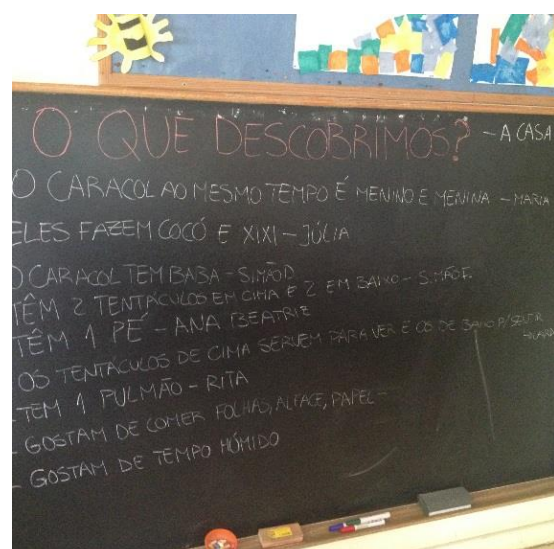 O QUE DESCOBRIMOS? - A CASA
O CARACOL AO MESMO TEMPO É MENINO E MENINA - MARIA
ELES FAZEM COCÓ E XIXI - JÚLIA
O CARACOL TEM BABA - SIMÃO D
TÊM 2 TENTÁCULOS EM CIMA E 2 EM BAIXO - SIMÃO F.
TÊM 1 PÉ - ANA BEATRIZ
OS TENTÁCULOS DE CIMA SERVEM PARA VER E OS DE BAIXO P/ SENTIR
- TEM 1 PULMÃO - RITA
- GOSTAM DE COMER FOLHAS, ALFACE, PAPEL -
- GOSTAM DE TEMPO HÚMIDO